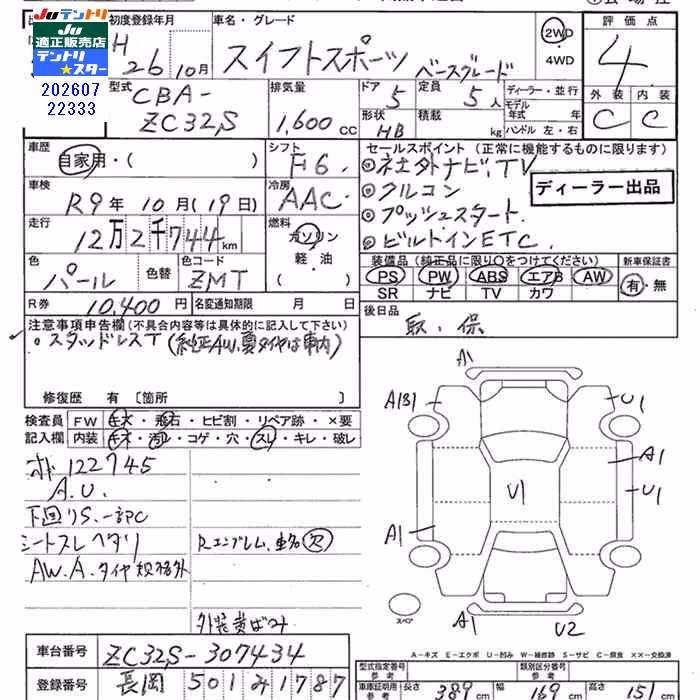 Juテントリ Ju テントリ
適正販売店
テントリ
★スター
202607
22333
初度登録年月 車名・グレード 評価点
H 26 10月 スイフトスポーツ ベースグレード 2WD 4WD 4
型式 排気量 ドア 定員 ディーラー・並行 外装 内装
CBA-ZC32S 1,600cc 5 5人 モデル年式 年 C C
形状 積載 ハンドル 左・右
HB kg
車歴 シフト セールスポイント(正常に機能するものに限ります)
自家用・( ) F6 ◎社外ナビ, TV
車検 冷房 ◎クルコン ディーラー出品
R9年10月(19日) AAC ◎プッシュスタート
走行 燃料 ◎ビルトインETC
12万2千744km ガソリン
軽・油
( )
色 色替 色コード 装備品(純正品に限り○をつけてください) 新車保証書
パール ZMT PS PW ABS エアB AW 有・無
SR ナビ TV カワ
R券 10,400円 名変通知期限 月 日 後日品
取, 保
注意事項申告欄(不具合内容等は具体的に記入して下さい)
◦スタッドレスT(純正AW,夏タイヤは車内)
修復歴 有 〔箇所 〕
検査員 FW キズ・飛石・ヒビ割・リペア跡・×要
記入欄 内装 キズ・汚れ・コゲ・穴・スレ・キレ・破レ
122745
A.U.
下回りS.一部C
シートスレヘタリ Rエンブレム,車名欠
AW.A.タイヤ規格外
外装黄ばみ
A1
A(B)1 U1
A1
U1 U1
A1
スペア
A1 U2
A-キズ E-エクボ U-凹み W-補修跡 S-サビ C-腐食 ××-交換済
車台番号 ZC32S-307434
登録番号 長岡 501 み 1787
型式指定番号 参考 類別区分番号 参考
車庫証明用 参考 長さ 389cm 幅 169cm 高さ 151cm